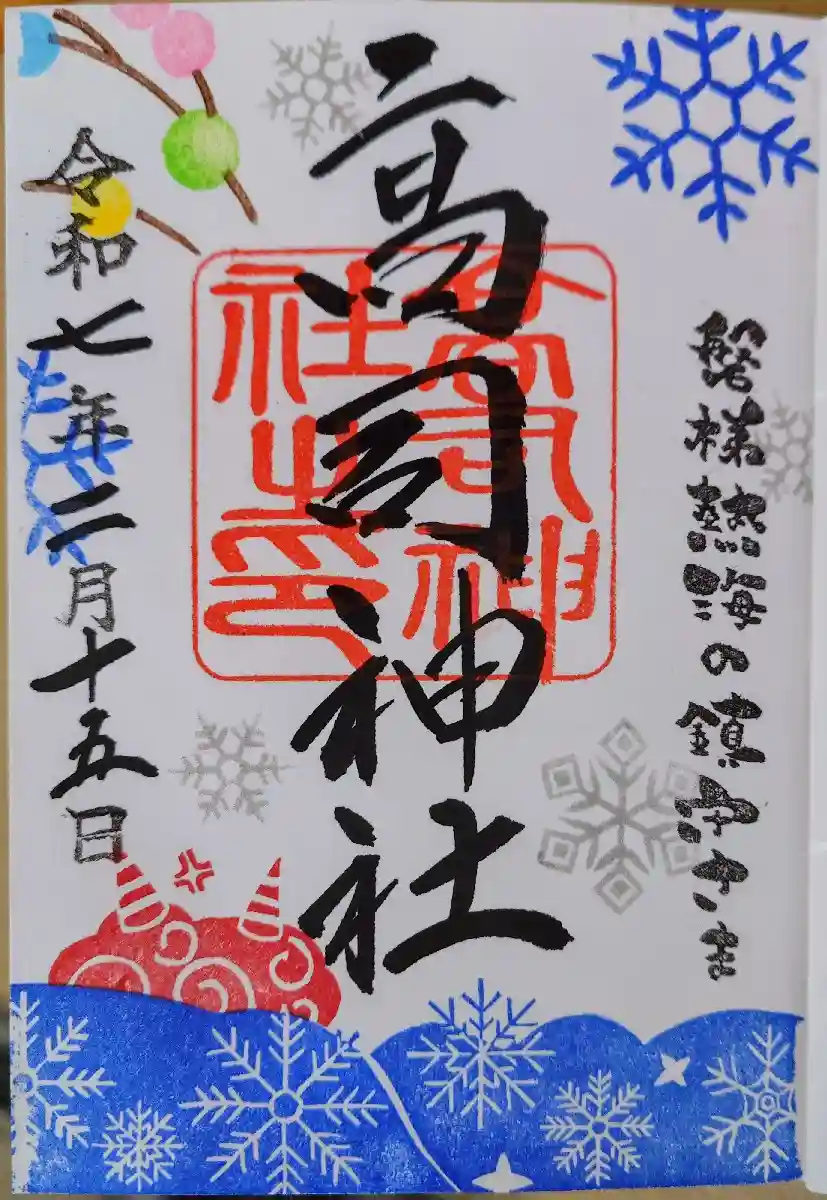 磐梯熱海の鎮守さま
高司神社
高司神
社之印
令和七年二月十五日